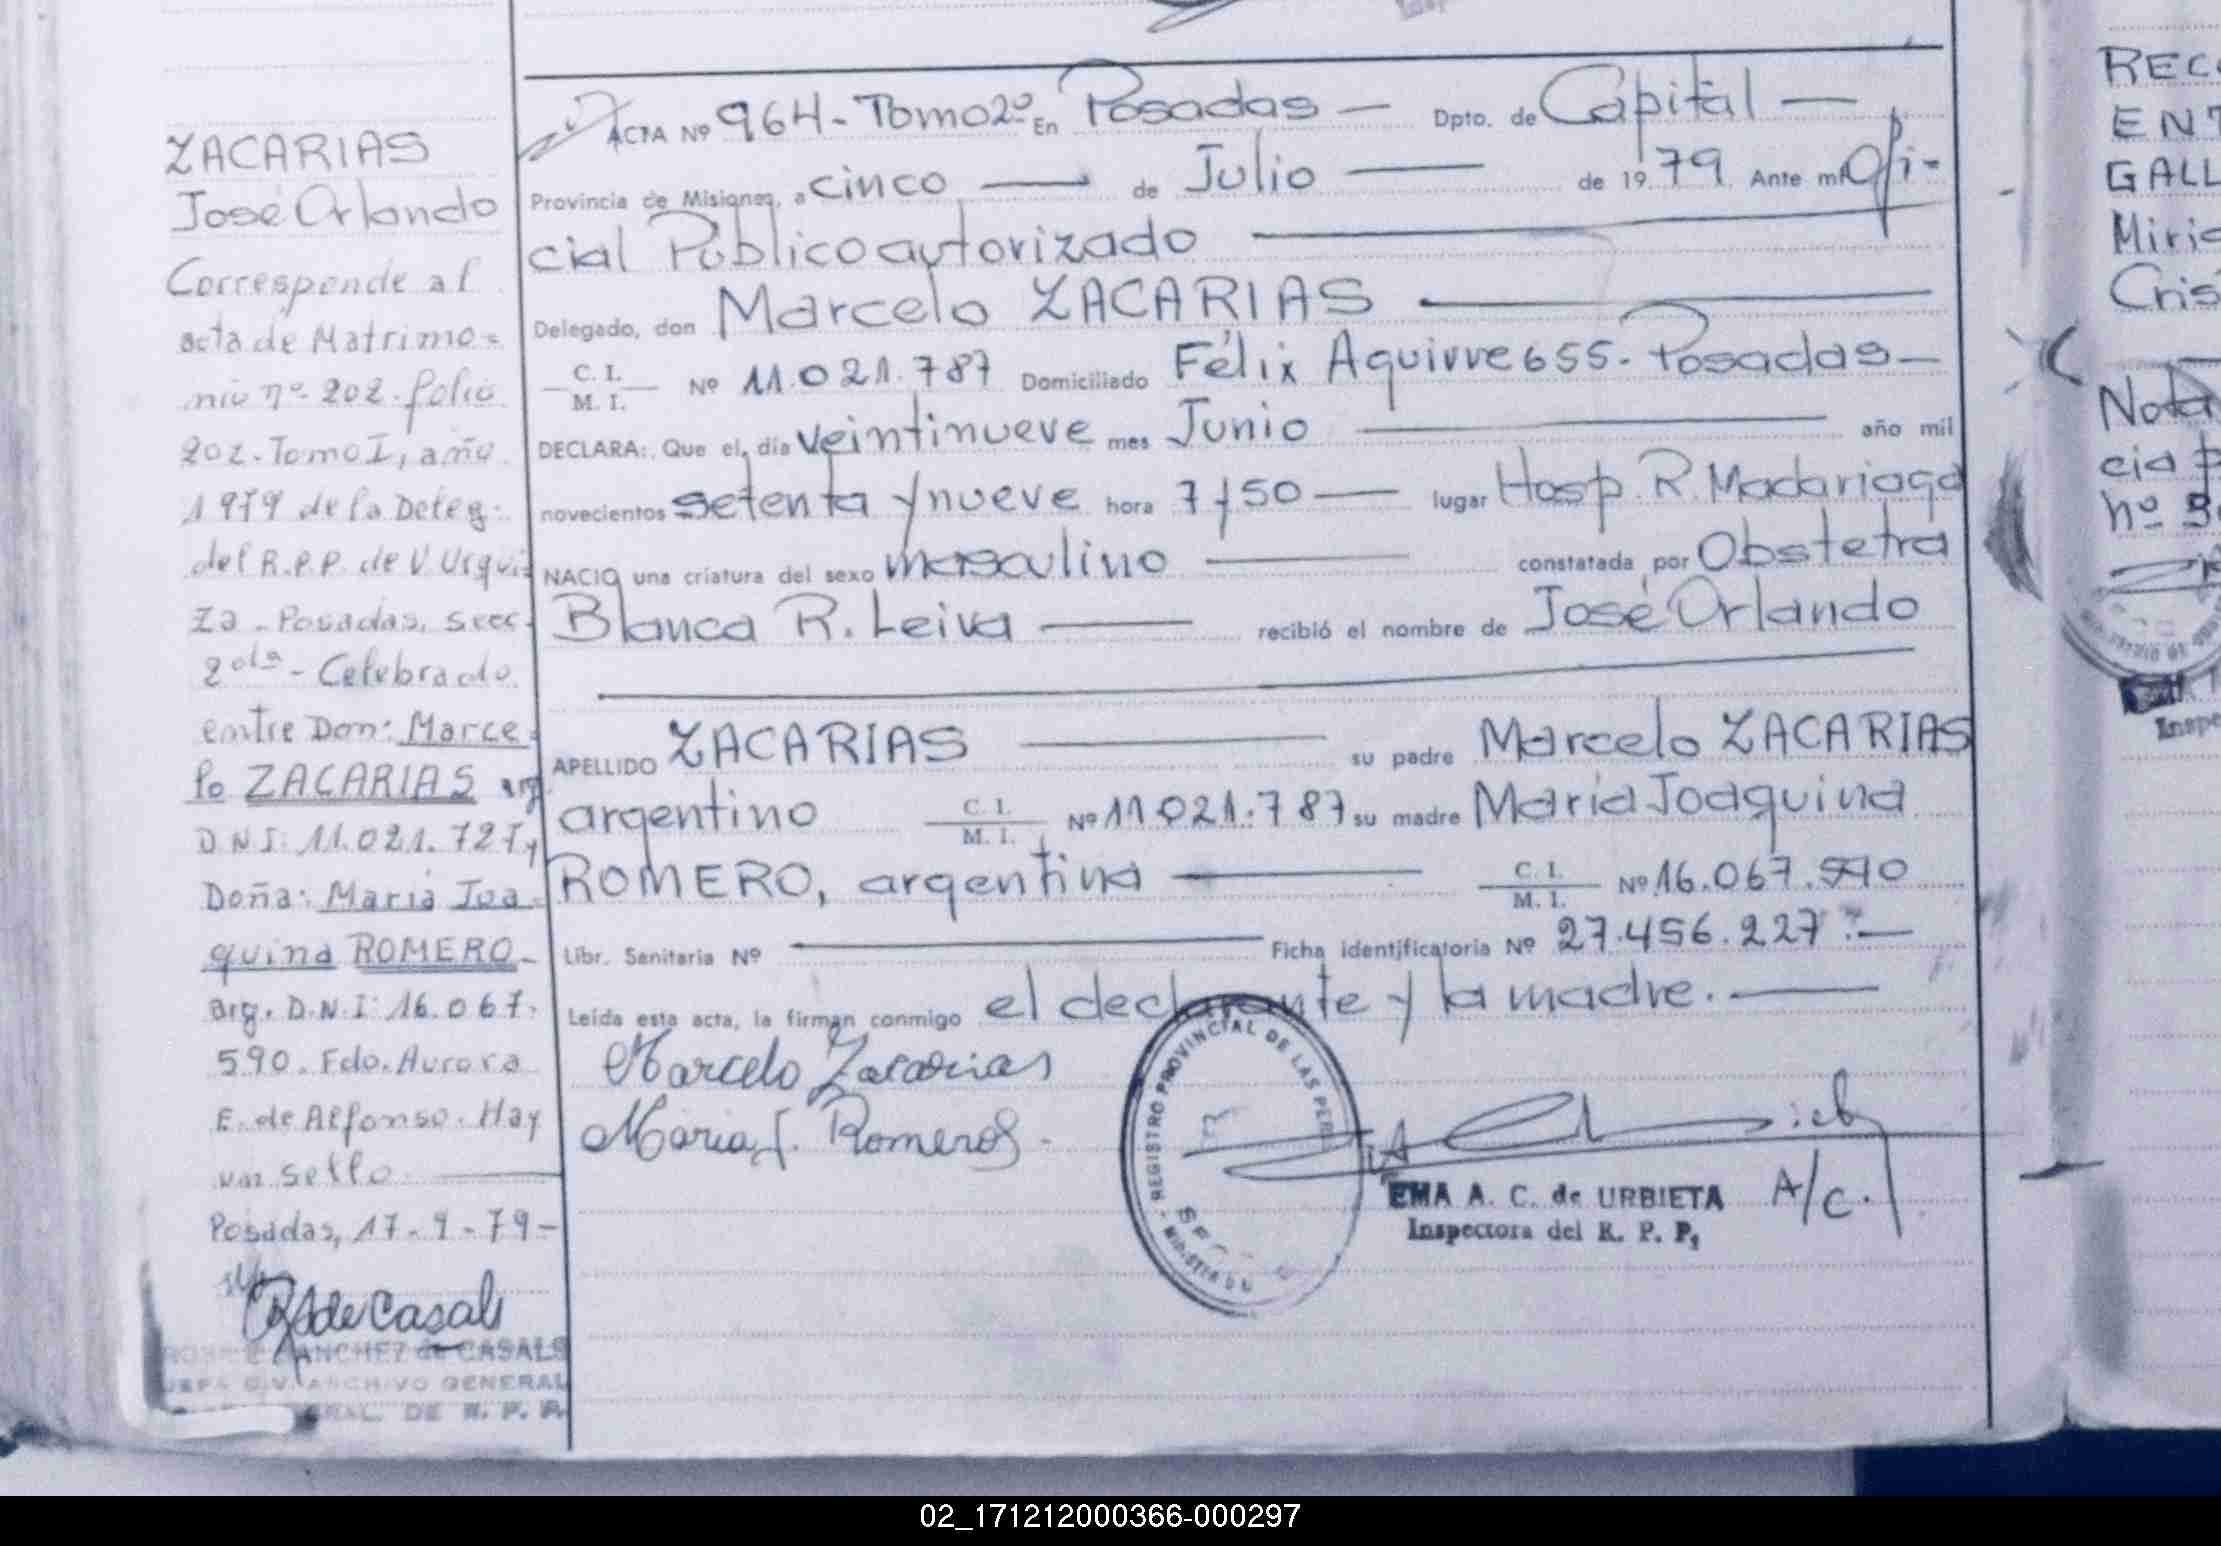 ZACARIAS
José Orlando
Corresponde al
acta de Matrimo=
nio nº 202. folio
202. Tomo I, año
1979 de la Deleg.
del R.P.P. de V. Urqui
za - Posadas, secc
2da - Celebrado
entre Don: Marce
lo ZACARIAS arg
D.N.I: 11.021.727 y
Doña: Maria Joa
quina ROMERO -
arg. D.N.I: 16.067.
590. Fdo. Aurora
E. de Alfonso. Hay
un sello
Posadas, 17-9-79-
RS de Casals
SANCHEZ de CASALS
JEFA DIV. ARCHIVO GENERAL
DE R. P. P.
ACTA Nº 964 - Tomo 2º En Posadas — Dpto. de Capital —
Provincia de Misiones, a cinco — de Julio — de 1979 Ante mí Ofi-
cial Público autorizado —
Delegado, don Marcelo ZACARIAS —
C. I.
M. I. Nº 11.021.787 Domiciliado Félix Aguirre 655. Posadas —
DECLARA: Que el día veintinueve mes Junio — año mil
novecientos setenta y nueve hora 7 y 50 — lugar Hosp. R. Madariaga
NACIO una criatura del sexo masculino — constatada por Obstetra
Blanca R. Leiva — recibió el nombre de José Orlando
APELLIDO ZACARIAS — su padre Marcelo ZACARIAS
argentino C. I.
M. I. Nº 11.021.787 su madre Maria Joaquina
ROMERO, argentina — C. I.
M. I. Nº 16.067.590
Libr. Sanitaria Nº — Ficha identificatoria Nº 27.456.227 —
Leída esta acta, la firman conmigo el declarante y la madre. —
Marcelo Zacarias
Maria J. Romero
REGISTRO PROVINCIAL DE LAS PERS
EMA A. C. de URBIETA A/c.
Inspectora del R. P. P.
REC
ENT
GALL
Miri
Cris
Nota
cia p
nº
Inspe
02_171212000366-000297